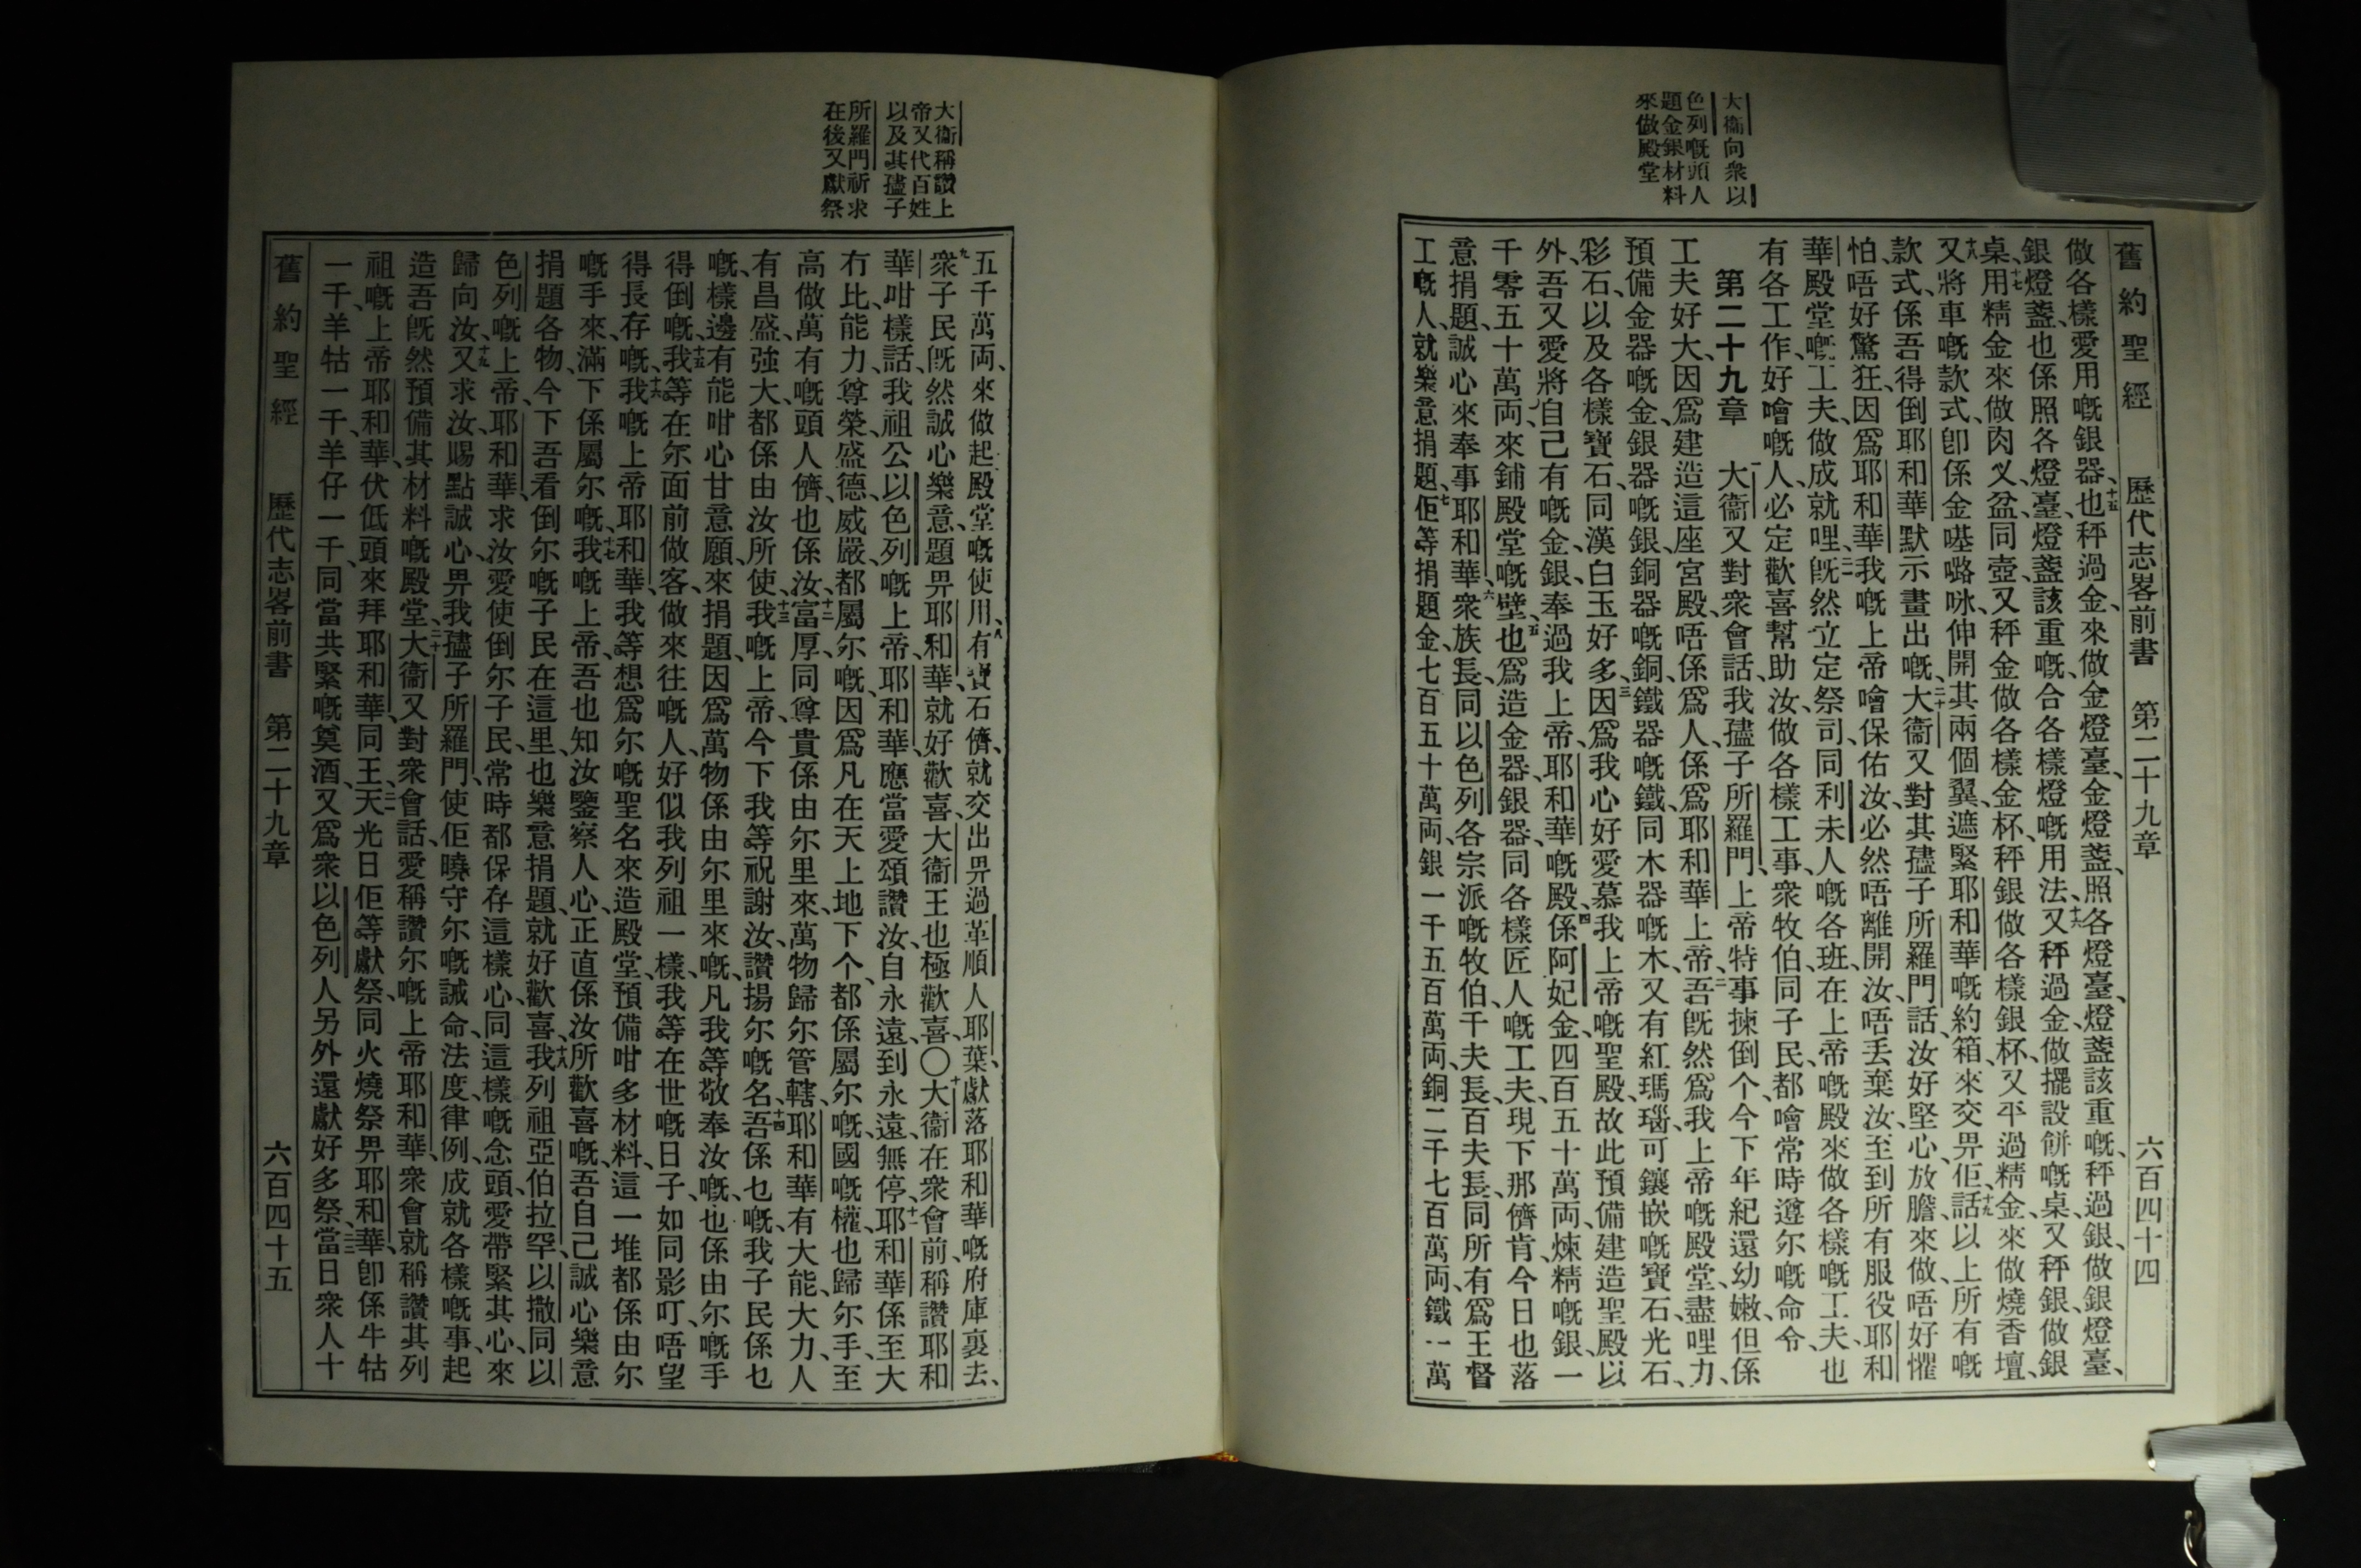 大衞向衆以
色列嘅頭人
題金銀材料
來做殿堂
舊約聖經 歷代志畧前書 第二十九章 六百四十四
做各樣愛用嘅銀器也、十五秤過金、來做金燈臺、金燈盞、照各燈臺、燈盞該重嘅、秤過銀、做銀燈臺、
銀燈盞、也係照各燈臺、燈盞該重嘅、合各樣燈嘅用法、十六又秤過金、做擺設餅嘅桌、又秤銀、做銀
桌、十七用精金來做肉叉、盆、同壺、又秤金做各樣金杯、秤銀做各樣銀杯、十八又平過精金、來做燒香壇、
又將車嘅款式、卽係金𠸄嚕咏、伸開其兩個翼、遮緊耶和華嘅約箱、來交畀佢、十九話以上所有嘅
款式、係吾得倒耶和華默示畫出嘅、二十大衞又對其𡥧子所羅門話、汝好堅心、放膽來做、唔好懼
怕、唔好驚狂、因爲耶和華我嘅上帝噲保佑汝、必然唔離開汝、唔丟棄汝、至到所有服役耶和
華殿堂嘅工夫、做成就哩、二一旣然立定祭司、同利未人嘅各班、在上帝嘅殿來做各樣嘅工夫、也
有各工作、好噲嘅人、必定歡喜幫助汝、做各樣工事、衆牧伯、同子民、都噲常時遵尔嘅命令、
第二十九章 一大衞又對衆會話、我𡥧子所羅門、上帝特事揀倒个、今下年紀還幼嫩、但係
工夫好大、因爲建造這座宮殿、唔係爲人、係爲耶和華上帝、二吾旣然爲我上帝嘅殿堂、盡哩力、
預備金器嘅金、銀器嘅銀、銅器嘅銅、鐵器嘅鐵、同木器嘅木、又有紅瑪瑙、可鑲嵌嘅寶石、光石、
彩石、以及各樣寶石、同漢白玉好多、三因爲我心好愛慕我上帝嘅聖殿、故此預備建造聖殿以
外、吾又愛將自己有嘅金、銀、奉過我上帝、耶和華嘅殿、四係阿妃金四百五十萬両、煉精嘅銀、一
千零五十萬両、來鋪殿堂嘅壁、五也爲造金器、銀器、同各樣匠人嘅工夫、現下那儕肯今日也落
意捐題、誠心來奉事耶和華、六衆族長、同以色列各宗派嘅牧伯、千夫長、百夫長、同所有爲王督
工嘅人、就樂意捐題、七佢等捐題金七百五十萬両、銀一千五百萬両、銅二千七百萬両、鐵一萬
大衞稱讚上
帝又代百姓
以及其𡥧子
所羅門祈求
在後又獻祭
五千萬両、來做起殿堂嘅使用、八有寶石儕、就交出畀過革順人耶葉、獻落耶和華嘅府庫裏去、
九衆子民旣然誠心樂意、題畀耶和華、就好歡喜、大衞王也極歡喜〇十大衞在衆會前稱讚耶和
華、咁樣話、我祖公以色列嘅上帝、耶和華、應當愛頌讚汝、自永遠、到永遠、無停、十一耶和華係至大
冇比、能力、尊榮、盛德、威嚴、都屬尔嘅、因爲凡在天上地下个、都係屬尔嘅、國嘅權、也歸尔手、至
高做萬有嘅頭人儕、也係汝、十二富厚、同尊貴係由尔里來、萬物歸尔管轄、耶和華有大能、大力、人
有昌盛、強大、都係由汝所使、十三我嘅上帝、今下我等祝謝汝、讚揚尔嘅名、十四吾係乜嘅、我子民係乜
嘅、樣邊有能咁心甘意願、來捐題、因爲萬物係由尔里來嘅、凡我等敬奉汝嘅、也係由尔嘅手
得倒嘅、十五我等在尔面前做客、做來往嘅人、好似我列祖一樣、我等在世嘅日子、如同影叮、唔望
得長存嘅、十六我嘅上帝耶和華、我等想爲尔嘅聖名來造殿堂、預備咁多材料、這一堆都係由尔
嘅手來、滿下係屬尔嘅、十七我嘅上帝、吾也知汝鑒察人心、正直係汝所歡喜嘅、吾自己誠心樂意
捐題各物、今下吾看倒尔嘅子民在這里、也樂意捐題、就好歡喜、十八我列祖亞伯拉罕、以撒、同以
色列嘅上帝、耶和華、求汝愛使倒尔子民、常時都保存這樣心、同這樣嘅念頭、愛帶緊其心、來
歸向汝、十九又求汝、賜點誠心、畀我𡥧子所羅門、使佢曉守尔嘅誡命、法度、律例、成就各樣嘅事、起
造吾旣然預備其材料嘅殿堂、二十大衞又對衆會話、愛稱讚尔嘅上帝耶和華、衆會就稱讚其列
祖嘅上帝耶和華、伏低頭來拜耶和華、同王、二一天光日佢等獻祭、同火燒祭畀耶和華、卽係牛牯
一千、羊牯一千、羊仔一千、同當共緊嘅奠酒、又爲衆以色列人另外還獻好多祭、二二當日衆人十
舊約聖經 歷代志畧前書 第二十九章 六百四十五